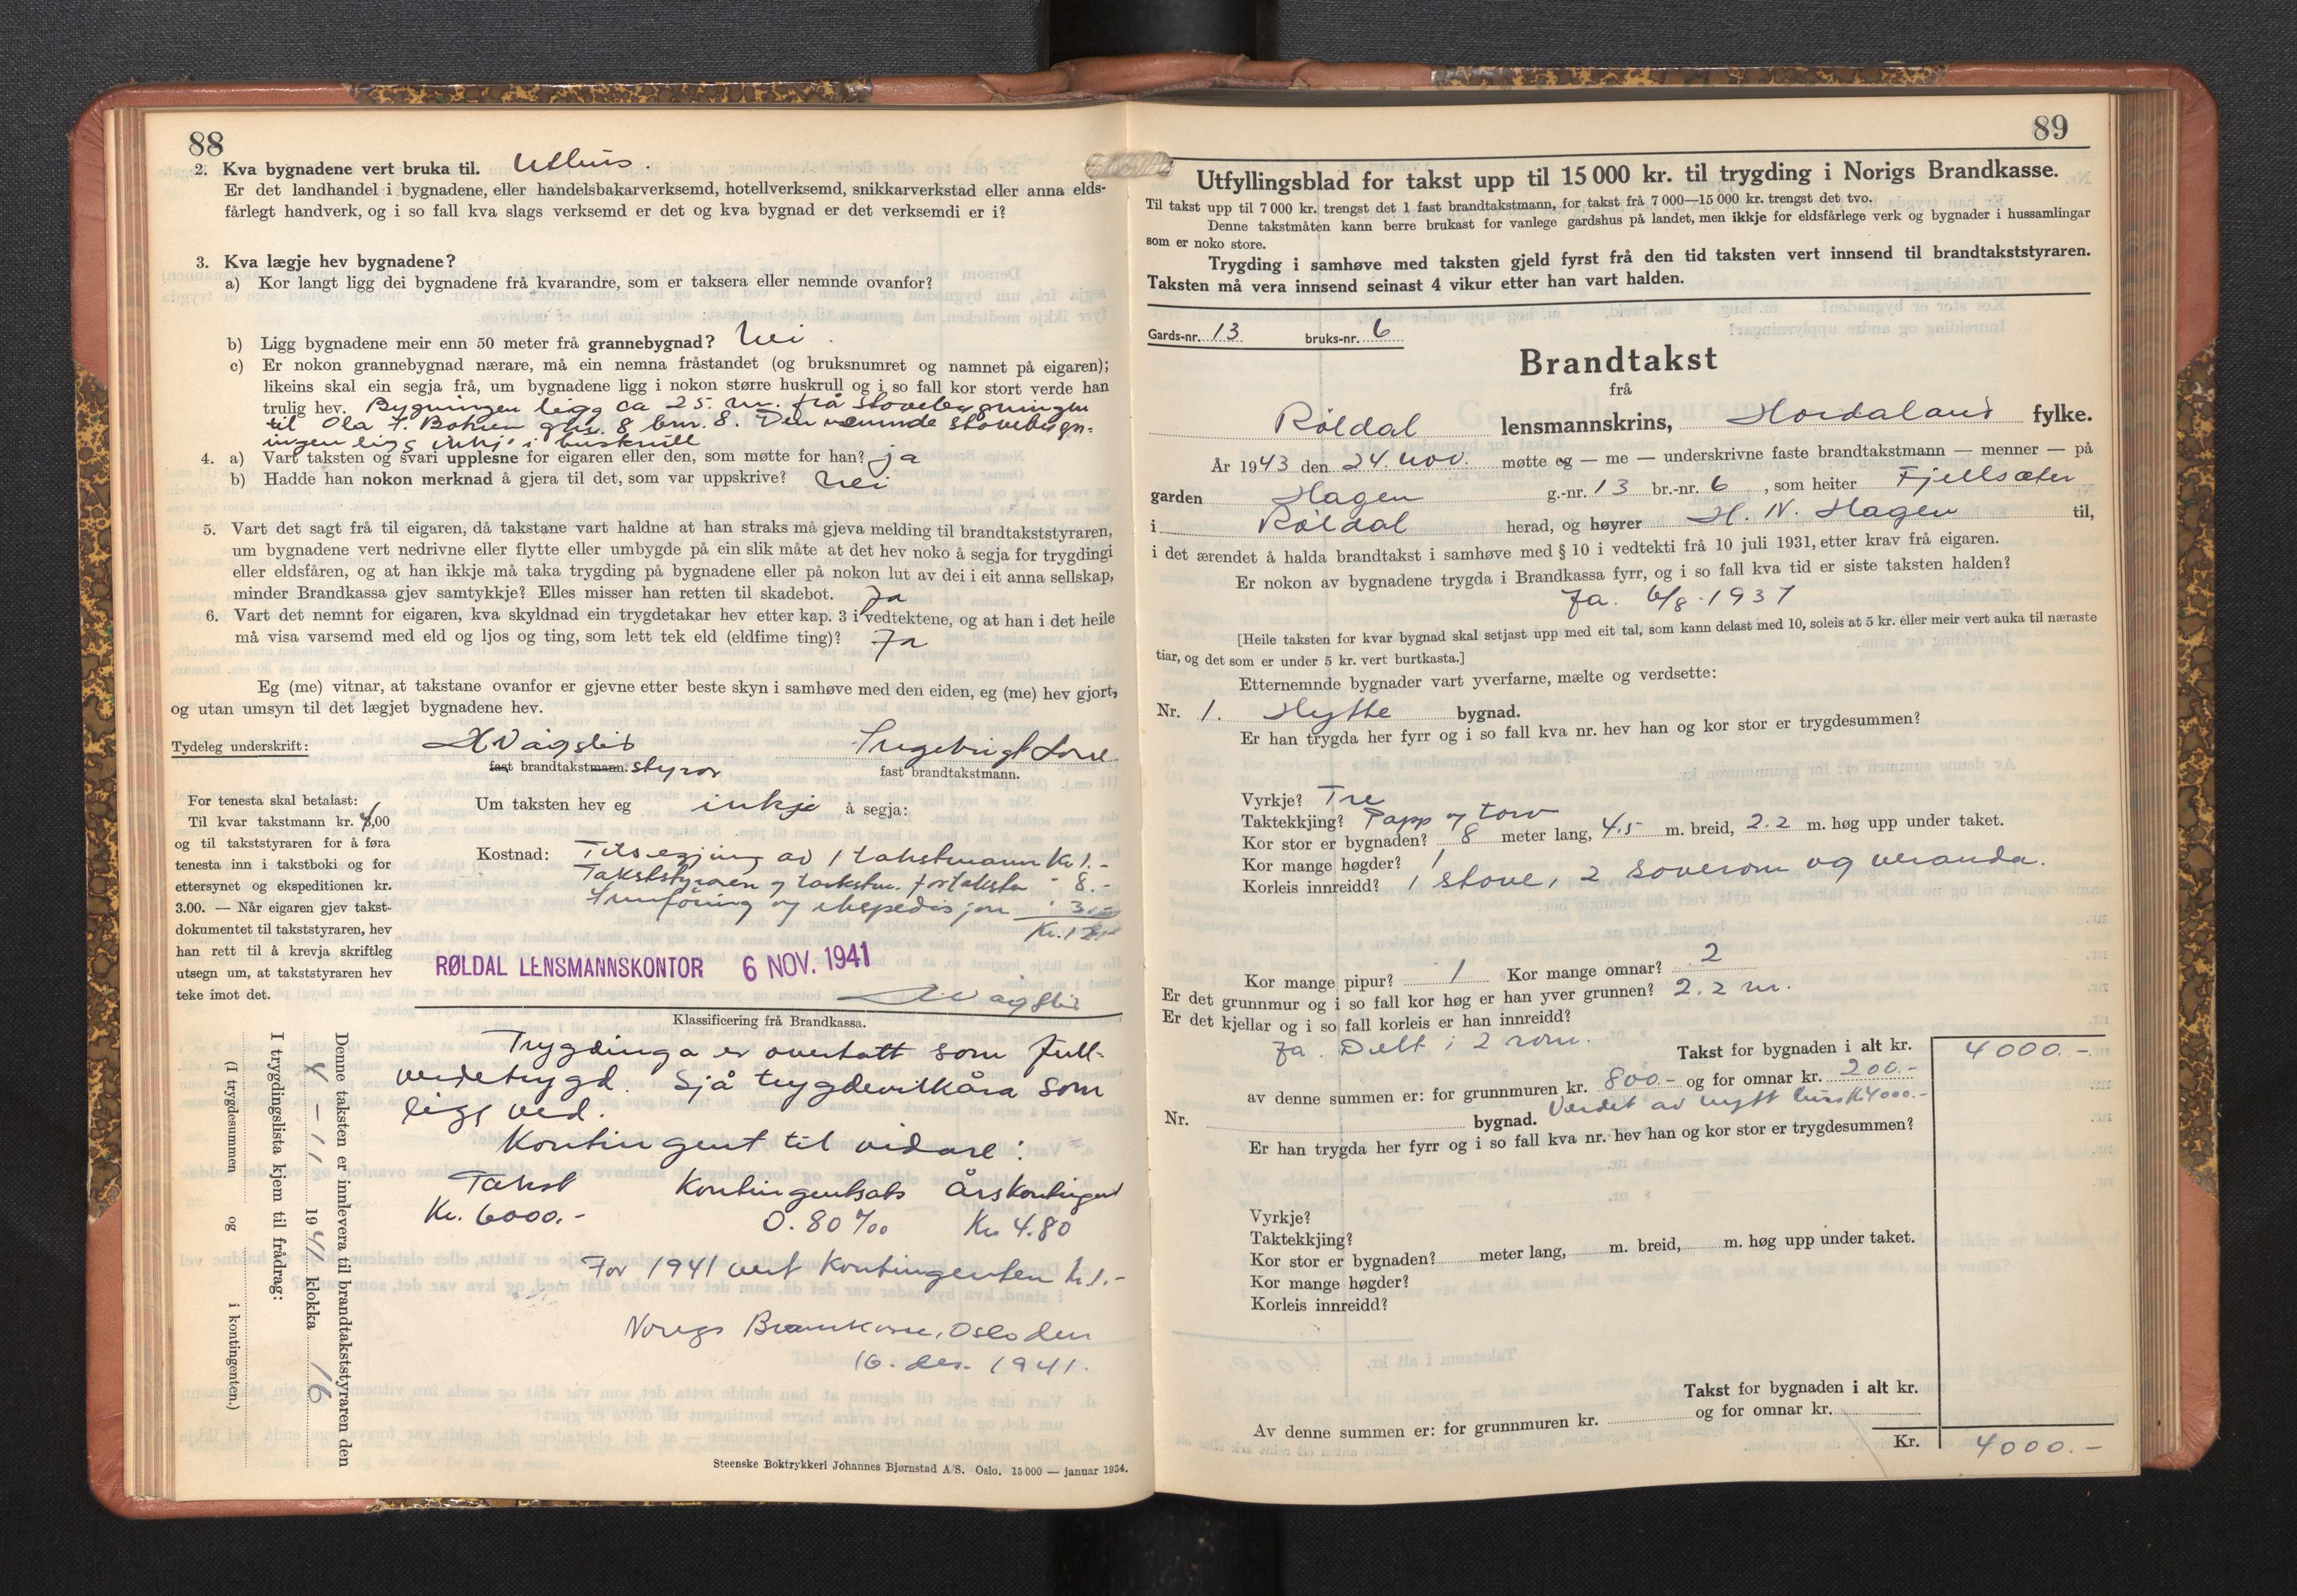 88
2. Kva bygnadene vert bruka til. Uthus.
Er det landhandel i bygnadene, eller handelsbakarverksemd, hotellverksemd, snikkarverkstad eller anna elds-
fårlegt handverk, og i so fall kva slags verksemd er det og kva bygnad er det verksemdi er i?
3. Kva lægje hev bygnadene?
a) Kor langt ligg dei bygnadene frå kvarandre, som er taksera eller nemnde ovanfor?
b) Ligg bygnadene meir enn 50 meter frå grannebygnad? Nei.
c) Er nokon grannebygnad nærare, må ein nemna fråstandet (og bruksnumret og namnet på eigaren);
likeins skal ein segja frå, um bygnadene ligg i nokon større huskrull og i so fall kor stort verde han
trulig hev. Bygningen ligg ca 25. m. frå stovebygningen
til Ola J. gnr. 8 bnr. 8. Den nemnde stovebygn-
ingen ligg inkje i huskrull
4. a) Vart taksten og svari upplesne for eigaren eller den, som møtte for han? ja
b) Hadde han nokon merknad å gjera til det, som var uppskrive? Nei
5. Vart det sagt frå til eigaren, då takstane vart haldne at han straks må gjeva melding til brandtakststyraren,
um bygnadene vert nedrivne eller flytte eller umbygde på ein slik måte at det hev noko å segja for trygdingi
eller eldsfåren, og at han ikkje må taka trygding på bygnadene eller på nokon lut av dei i eit anna sellskap,
minder Brandkassa gjev samtykkje? Elles misser han retten til skadebot. Ja
6. Vart det nemnt for eigaren, kva skyldnad ein trygdetakar hev etter kap. 3 i vedtektene, og at han i det heile
må visa varsemd med eld og ljos og ting, som lett tek eld (eldfime ting)? Ja
Eg (me) vitnar, at takstane ovanfor er gjevne etter beste skyn i samhøve med den eiden, eg (me) hev gjort,
og utan umsyn til det lægjet bygnadene hev.
Tydeleg underskrift: H Vågslid Ingebrigt
fast brandtakstmann. styrar fast brandtakstmann.
For tenesta skal betalast:
Til kvar takstmann kr. 4,00
og til takststyraren for å føra
tenesta inn i takstboki og for
ettersynet og ekspeditionen kr.
3.00. — Når eigaren gjev takst-
dokumentet til takststyraren, hev
han rett til å krevja skriftleg
utsegn um, at takststyraren hev
teke imot det.
Um taksten hev eg inkje å segja:
Kostnad: Tilsegjing av 1 takstmann Kr 1.-
Takststyraren og takstm. for taksten " 8.-
Innføring og ekspedisjon " 3.-
Kr. 12.-
RØLDAL LENSMANNSKONTOR 6 NOV. 1941
H Vågslid
Klassificering frå Brandkassa.
Trygdinga er overtatt som full-
verdetrygd. Sjå trygdevilkåra som
ligg ved.
Kontingent til vidare:
Takst Kontingentsats Årskontingent
Kr. 6000.- 0.80 ‰ Kr 4.80
For 1941 vert Kontingenten kr. 1.-
Noregs Brannkasse, Oslo den
16. des. 1941.
Denne taksten er innlevera til brandtakststyraren den
4 – 11 1941 klokka 16
I trygdingslista kjem til frådrag:
(I trygdesummen og i kontingenten.)
Steenske Boktrykkeri Johannes Bjørnstad A/S. Oslo. 15 000 — januar 1934.
89
Utfyllingsblad for takst upp til 15 000 kr. til trygding i Norigs Brandkasse.
Til takst upp til 7 000 kr. trengst det 1 fast brandtakstmann, for takst frå 7 000—15 000 kr. trengst det tvo.
Denne takstmåten kann berre brukast for vanlege gardshus på landet, men ikkje for eldsfårlege verk og bygnader i hussamlingar
som er noko store.
Trygding i samhøve med taksten gjeld fyrst frå den tid taksten vert innsend til brandtakststyraren.
Taksten må vera innsend seinast 4 vikur etter han vart halden.
Gards-nr. 13 bruks-nr. 6
Brandtakst
frå
Røldal lensmannskrins, Hordaland fylke.
År 1943 den 24. nov. møtte eg — me — underskrivne faste brandtakstmann — menner — på
garden Hagen g.-nr. 13 br.-nr. 6, som heiter Fjellsæter
i Røldal herad, og høyrer H. N. Hagen til,
i det ærendet å halda brandtakst i samhøve med § 10 i vedtekti frå 10 juli 1931, etter krav frå eigaren.
Er nokon av bygnadene trygda i Brandkassa fyrr, og i so fall kva tid er siste taksten halden?
Ja. 6/8. 1937
[Heile taksten for kvar bygnad skal setjast upp med eit tal, som kann delast med 10, soleis at 5 kr. eller meir vert auka til næraste
tiar, og det som er under 5 kr. vert burtkasta.]
Etternemnde bygnader vart yverfarne, mælte og verdsette:
Nr. 1. Hytte bygnad.
Er han trygda her fyrr og i so fall kva nr. hev han og kor stor er trygdesummen?
Vyrkje? Tre
Taktekkjing? Papp og torv
Kor stor er bygnaden? 8 meter lang, 4.5 m. breid, 2.2 m. høg upp under taket.
Kor mange høgder? 1
Korleis innreidd? 1 stove, 2 soverom og veranda.
Kor mange pipur? 1 Kor mange omnar? 2
Er det grunnmur og i so fall kor høg er han yver grunnen? 2.2 m.
Er det kjellar og i so fall korleis er han innreidd?
Ja. Delt i 2 rom.
Takst for bygnaden i alt kr. 4000.-
av denne summen er: for grunnmuren kr. 800.- og for omnar kr. 200.-
Verdet av nytt hus kr 4000.-
Nr. bygnad.
Er han trygda her fyrr og i so fall kva nr. hev han og kor stor er trygdesummen?
Vyrkje?
Taktekkjing?
Kor stor er bygnaden? meter lang, m. breid, m. høg upp under taket.
Kor mange høgder?
Korleis innreidd?
Takst for bygnaden i alt kr.
Av denne summen er: for grunnmuren kr. og for omnar kr.
Kr. 4000.-